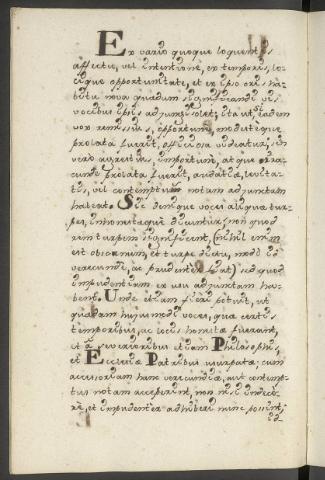 Ex vario quoque loquentis
affectu, vel intentione, ex temporis, lo-
cique opportunitate, et ex ipso oris ha-
bitu nova quædam significandi vis
vocibus ipsis adjungi solet; ita ut, si eadem
vox remissius, opportune, modesteque
prolata fuerit, officiosa videatur; sin
vero asperius, importune, atque ira-
cunde prolata fuerit, audaciæ, levita-
tis, vel contemptum notam adjunctam
habeat. Sic denique voces aliquæ tur-
pes, inhonestæque dicuntur, non quod
rem turpem significent, (nihil enim
est obscænum, et turpe dictu, modo id
verecunde, ac prudenter fiat) sed quod
impudentiam ex usu adjunctam ha-
bent. Unde etiam fieri potuit, ut
quædam hujusmodi voces, quæ certis
temporibus, ac locis honestæ fuerant,
et a severioribus etiam Philosophis,
et Ecclesiæ Patribus usurpatæ; cum
accessoriam hanc verecundiæ, aut contemp-
tus notam acceperint, non nisi indeco-
re, et impudenter adhiberi nunc possint;